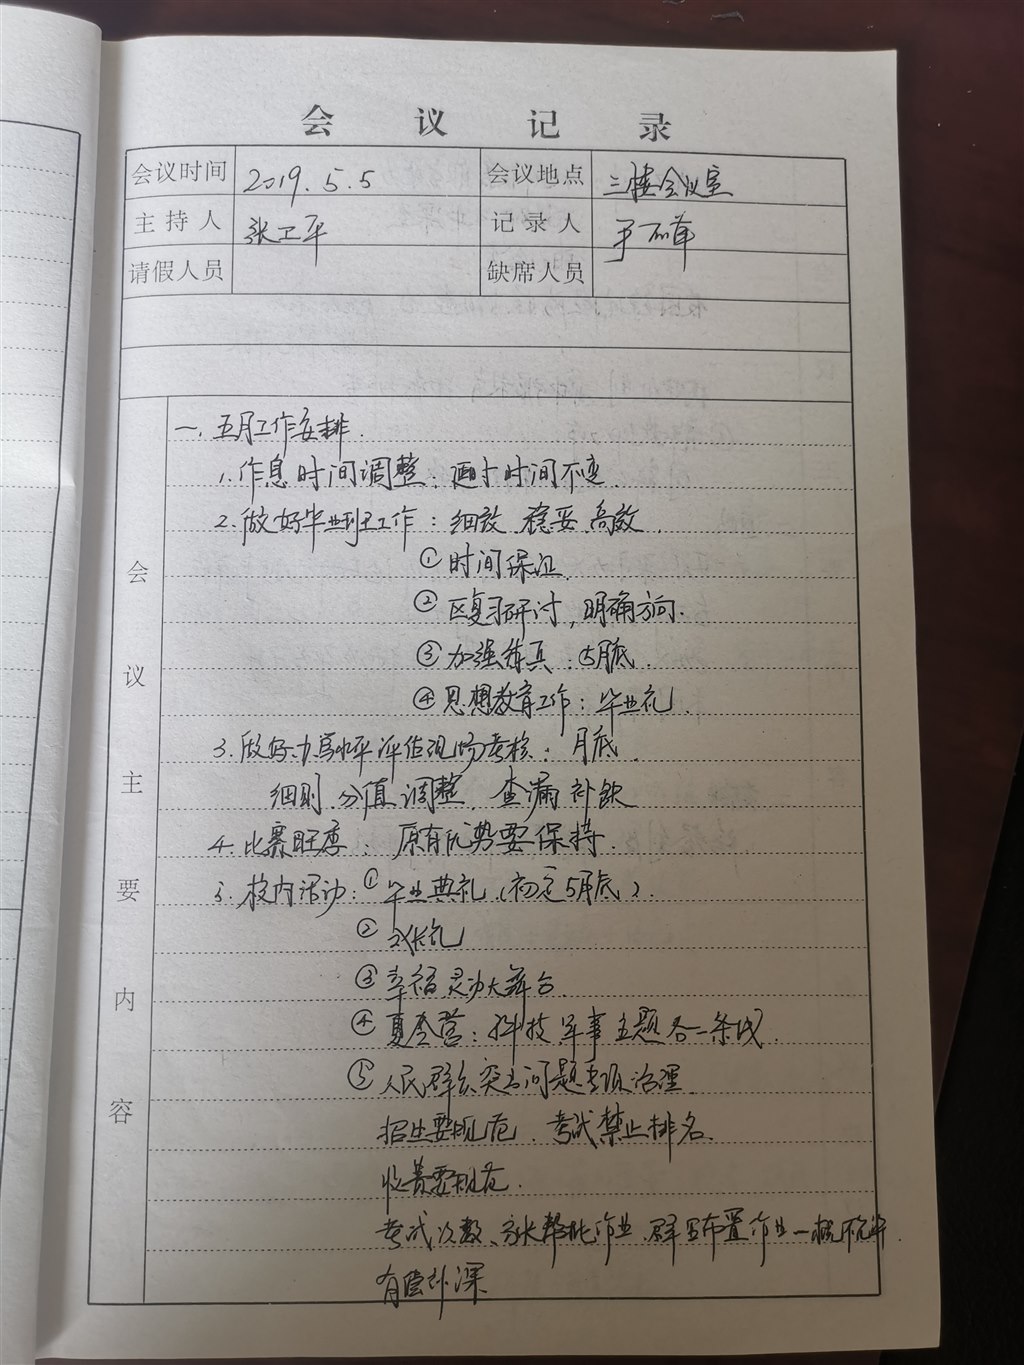 会议记录
会议时间 2019.5.5 会议地点 三楼会议室
主持人 张卫平 记录人
请假人员 缺席人员
会议主要内容
一、五月工作安排.
1.作息时间调整:时间不变.
2.做好毕业班工作:细致、稳妥、高效.
①时间保证.
②区复习研讨,明确方向.
③加强练兵:5月底.
④思想教育工作:毕业礼.
3.做好办学水平评估现场考核:月底.
细则、分值调整、查漏补缺
4.比赛旺季:原有优势要保持.
5.校内活动:①毕业典礼(初定5月底).
②成长礼
③幸福灵动大舞台.
④夏令营:科技、军事主题各一条线.
⑤人民群众突出问题专项治理.
招生要规范、考试禁止排名.
收费要规范.
考试次数、家长帮批作业、群里布置作业一概不允许.
有偿补课